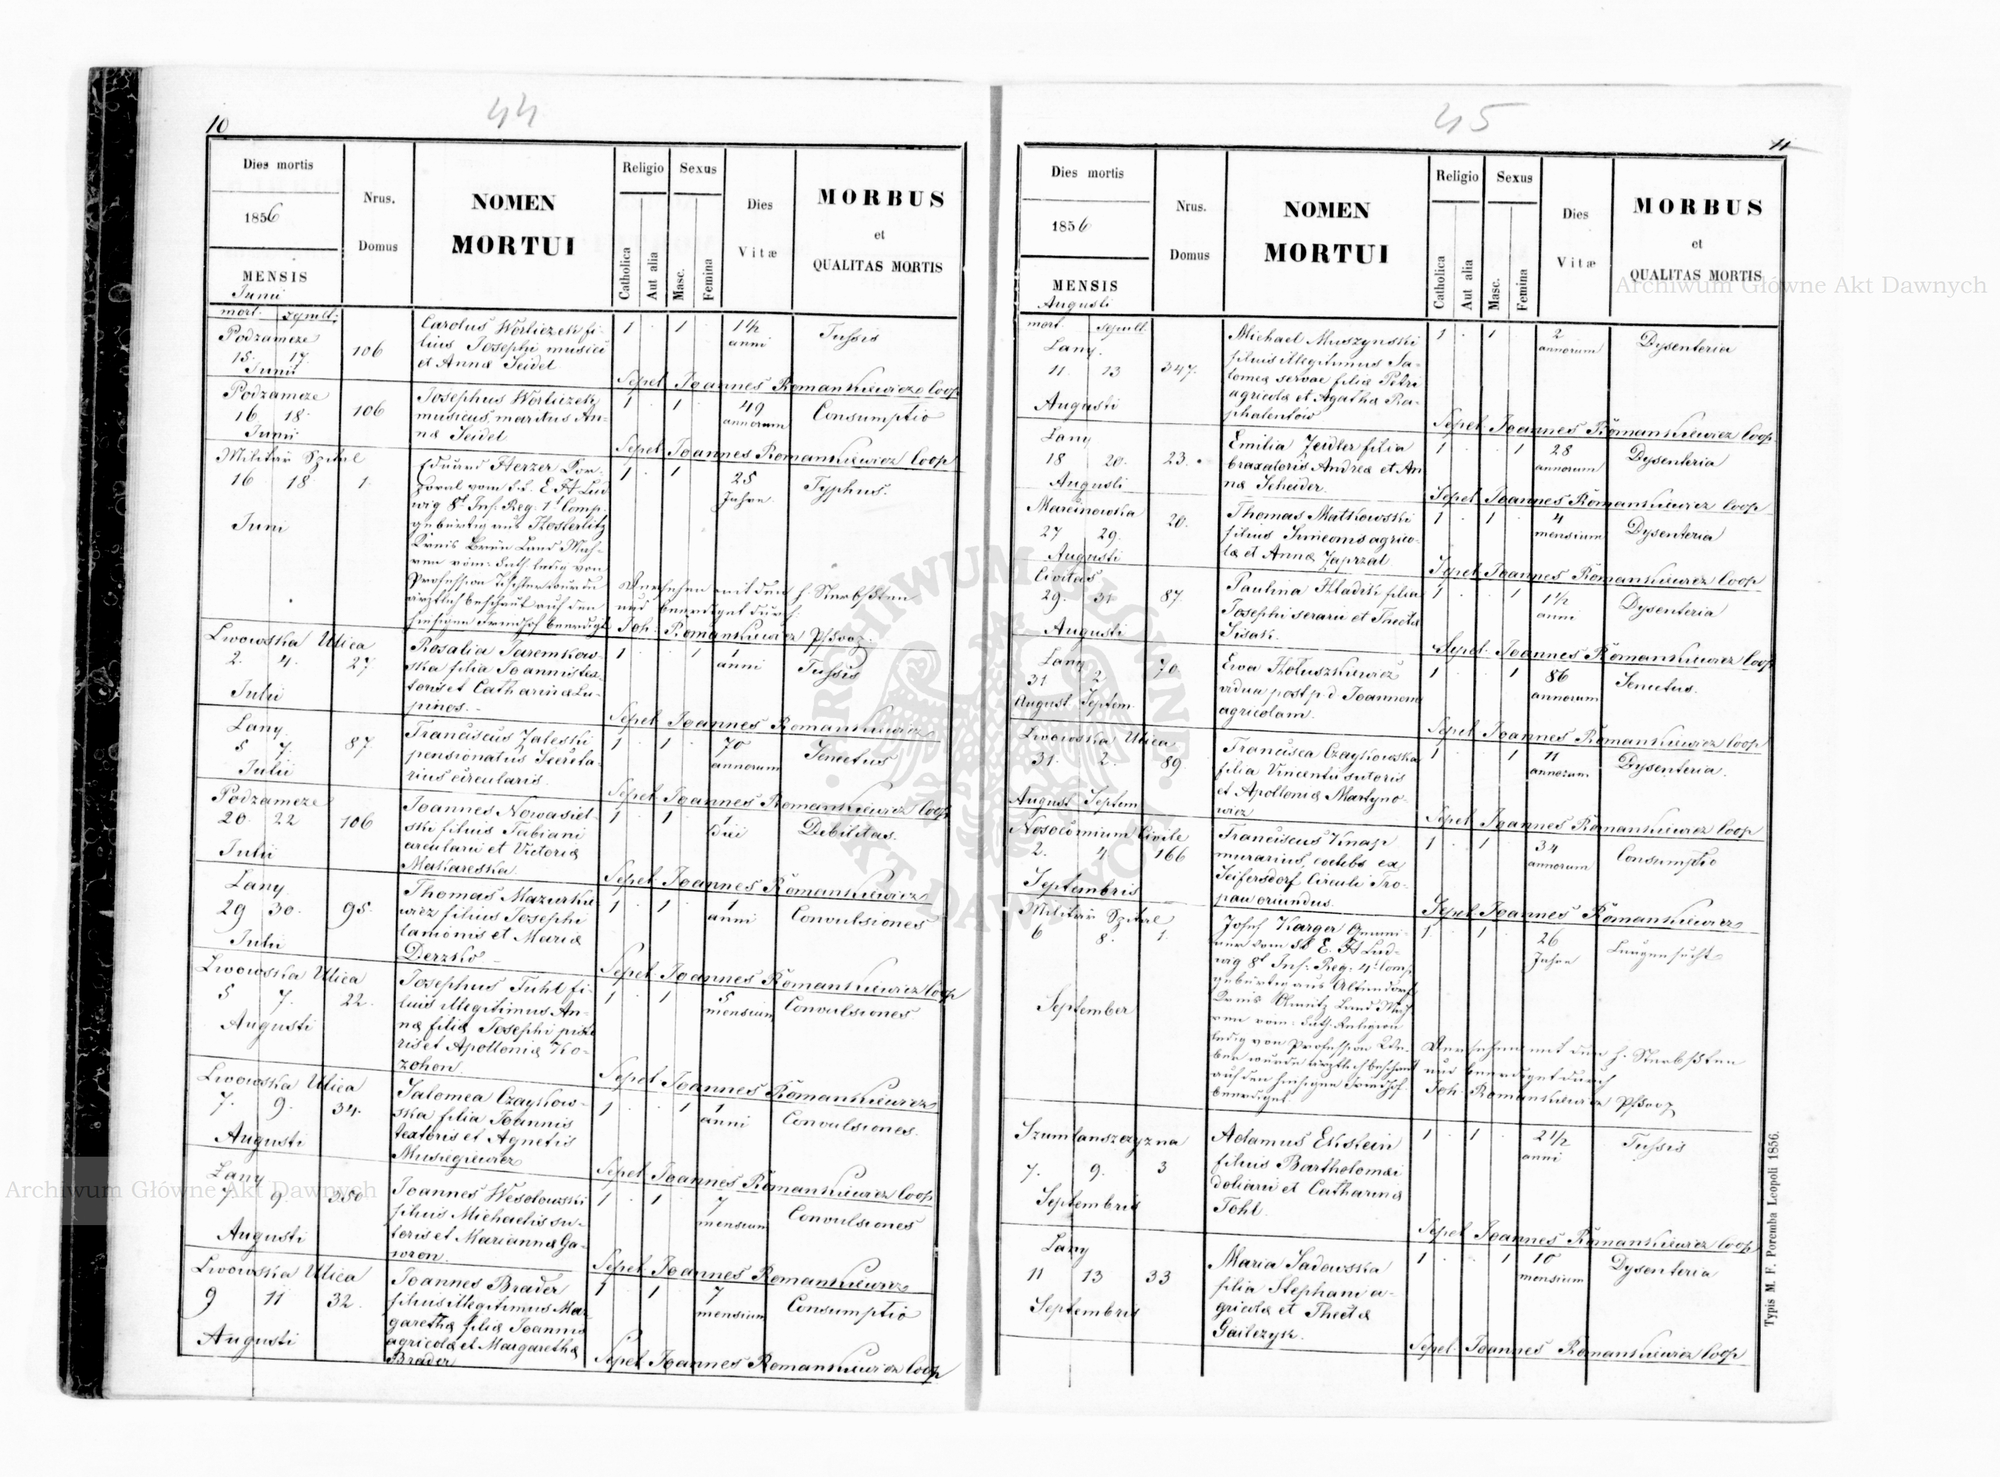 10
44
Dies mortis
1856
MENSIS
Junii
Nrus.
Domus
NOMEN
MORTUI
Religio
Catholica
Aut alia
Sexus
Masc.
Femina
Dies
Vitæ
MORBUS
et
QUALITAS MORTIS
mort. sepult.
Podzamcze
15. 17. 106
Junii
Carolus Wörliczek fi-
lius Josephi musici
et Annæ Seidel
1 . 1 .
1½
anni
Tussis
Sepel. Joannes Romankiewicz Coop
Podzamcze
16 18. 106
Junii
Josephus Wörliczek
musicus maritus An-
næ Seidel
1 . 1 .
49
annorum
Consumptio
Sepel. Joannes Romankiewicz Coop
Militär Spital
16 18. 1.
Juni
Eduard Herzer Kor-
poral vom k.k. E H Lud
wig 8t Inf: Reg. 1t Comp.
gebürtig aus
Kreis Brünn Land Mäh-
ren röm: kath: ledig von
Profession
ärztlich beschaut auf den
hiesigen Friedhof beerdigt
1 . 1
25
Jahre
Typhus.
Versehen mit den h. Sterbssten
und beerdiget durch
Joh. Romankiewicz
Lwowska Ulica
2. 4. 27
Julii
Rosalia Jaremkow-
ska filia Joannis tex-
toris et Catharinæ Lu-
pinos.
1 . . 1
1
anni
Tussis
Sepel. Joannes Romankiewicz
Lany
5 7. 87.
Julii
Franciscus Zaleski
pensionatus Secreta-
rius circularis.
1 . 1 .
70
annorum
Senectus
Sepel. Joannes Romankiewicz Coop
Podzamcze
20. 22 106
Julii
Joannes Nowasiel-
ski filius Fabiani
arcularii et Victoriæ
Makareska.
1 . 1
1
Diei
Debilitas.
Sepel. Joannes Romankiewicz
Lany
29 30. 95.
Julii
Thomas Mazurkie
wicz filius Josephi
lanionis et Mariæ
Derzko
1 . 1
1
anni
Convulsiones
Sepel. Joannes Romankiewicz Coop
Lwowska Ulica
5 7. 22.
Augusti
Josephus Tuhl fi-
lius illegitimus An-
næ filiæ Josephi pisto
ris et Apolloniæ Ko-
zohon.
1 . 1
5
mensium
Convulsiones
Sepel. Joannes Romankiewicz
Lwowska Ulica
7. 9. 34.
Augusti
Salomea Czaykow-
ska filia Joannis
textoris et Agnetis
Musiegiewicz
1 . . 1
1
anni
Convulsiones.
Sepel. Joannes Romankiewicz Coop
Lany
7 9. 350
Augusti
Joannes Wesołowski
filius Michaelis su-
toris et Mariannæ Ga-
wron.
1 . 1
7
mensium
Convulsiones
Sepel. Joannes Romankiewicz
Lwowska Ulica
9 11 32.
Augusti
Joannes Brader
filius illegitimus Mar
garethæ filiæ Joannis
agricolæ et Margarethæ
Brader
1 1
7
mensium
Consumptio
Sepel. Joannes Romankiewicz Coop
45
11
Dies mortis
1856
MENSIS
Augusti
Nrus.
Domus
NOMEN
MORTUI
Religio
Catholica
Aut alia
Sexus
Masc.
Femina
Dies
Vitæ
MORBUS
et
QUALITAS MORTIS
mort. sepult.
Lany.
11. 13 347.
Augusti
Michael Muszynski
filius illegitimus Sa-
lomeæ servæ filiæ Petri
agricolæ et Agathæ Ra-
phalentow
1 . 1 .
2
annorum
Dysenteria
Sepel. Joannes Romankiewicz Coop
Lany
18 20. 23.
Augusti
Emilia Zeidler filia
braxatoris Andreæ et An
næ Scheider.
1 . . 1
28
annorum
Dysenteria
Sepel. Joannes Romankiewicz Coop
Marcinowka
27 29. 20.
Augusti
Thomas Malkowski
filius Simeonis agrico-
læ et Annæ Japrzal
1 . 1 .
4
mensium
Dysenteria
Sepel. Joannes Romankiewicz Coop
Civitas
29. 31 87
Augusti
Paulina Hladki filia
Josephi serarii et Theclæ
Sisak.
1 . . 1
1½
anni
Dysenteria
Sepel. Joannes Romankiewicz Coop
Lany
31 2. 70.
August. Septem.
Ewa Hołuszkiewicz
vidua post p. d. Joannem
agricolam.
1 . . 1
86
annorum
Senectus.
Sepel. Joannes Romankiewicz Coop
Lwowska Ulica
31. 2. 89.
August Septem
Francisca Czaykowska
filia Vincentii sutoris
et Apolloniæ Martyno-
wicz
1 . . 1
11
annorum
Dysenteria.
Sepel. Joannes Romankiewicz Coop
Nosocomium Civile
2. 4. 166
Septembris
Franciscus Knap
murarius, coelebs ex
Seifersdorf Circuli Tro-
pau oriundus.
1 . 1 .
34
annorum
Consumptio
Sepel. Joannes Romankiewicz
Militär Spital
6 8. 1.
September
Josef Karger Gemei-
ner vom k.k. E. H Lud-
wig 8t Inf: Reg: 4t Comp.
gebürtig aus Altendorf
Kreis Olmütz Land Mäh-
ren röm: kath. Religion
ledig von Profession We-
ber wurde ärztlich beschaut
auf den hiesigen Friedhof
beerdiget
1 . 1 .
26
Jahre
Lungensucht
Versehen mit den h. Sterbssten
und beerdiget durch
Joh. Romankiewicz
Szumlanszczyzna
7. 9. 3
Septembris
Adamus Ekstein
filius Bartholomæi
doliarii et Catharinæ
Tohl.
1 . 1 .
2½
anni
Tussis
Sepel. Joannes Romankiewicz Coop
Lany
11 13 33
Septembris
Maria Sadowska
filia Stephani a-
gricolæ et Theclæ
Gailczyk.
1 . . 1
10
mensium
Dysenteria
Sepel. Joannes Romankiewicz Coop
Typis M. F. Poremba Leopoli 1856.
Archiwum Główne Akt Dawnych
Archiwum Główne Akt Dawnych
ARCHIWUM GŁÓWNE AKT DAWNYCH